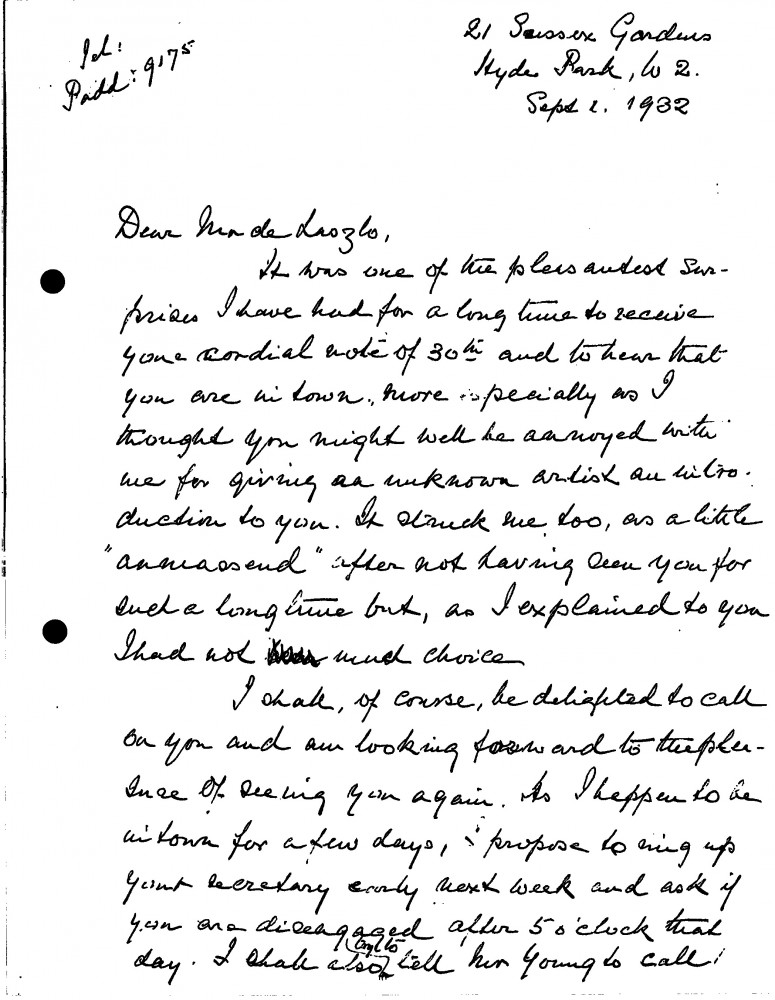 Tel:
Padd: 9175
21 Sussex Gardens
Hyde Park, W 2.
Sept 2. 1932
Dear Mr de Laszlo,
It was one of the pleasantest sur-
prises I have had for a long time to receive
your cordial note of 30th and to hear that
you are in town, more especially as I
thought you might well be annoyed with
me for giving an unknown artist an intro-
duction to you. It struck me, too, as a little
"anmassend" after not having seen you for
such a long time but, as I explained to you
I had not much choice
I shall, of course, be delighted to call
on you and am looking forward to the plea-
sure of seeing you again. As I happen to be
in town for a few days, I propose to ring up
your secretary early next week and ask if
you are disengaged after 5 o'clock that
day. I shall also tell Mr Young to call!